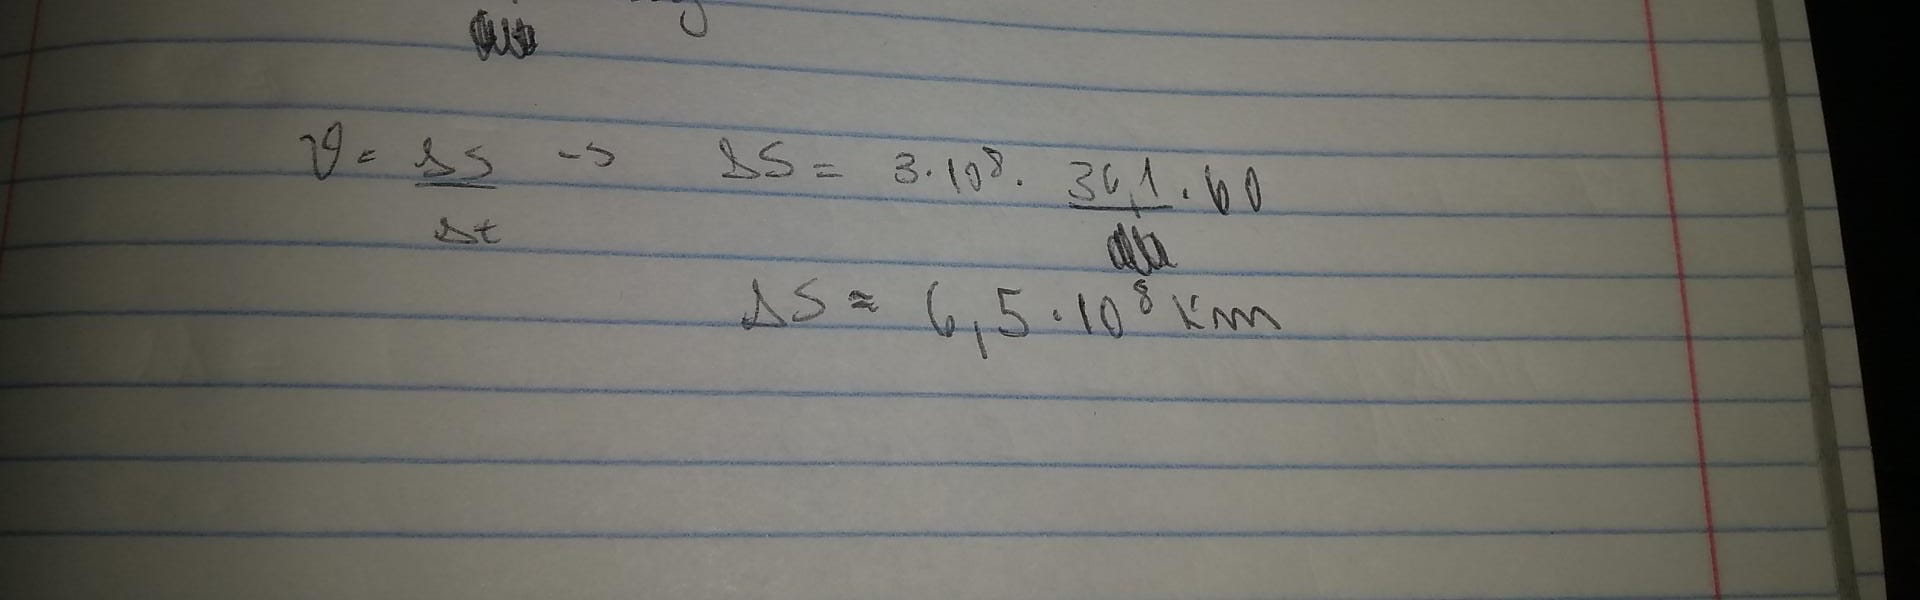 v = ΔS/Δt -> ΔS = 3·10⁸· 36,1 · 60
ΔS ≈ 6,5·10⁸ km